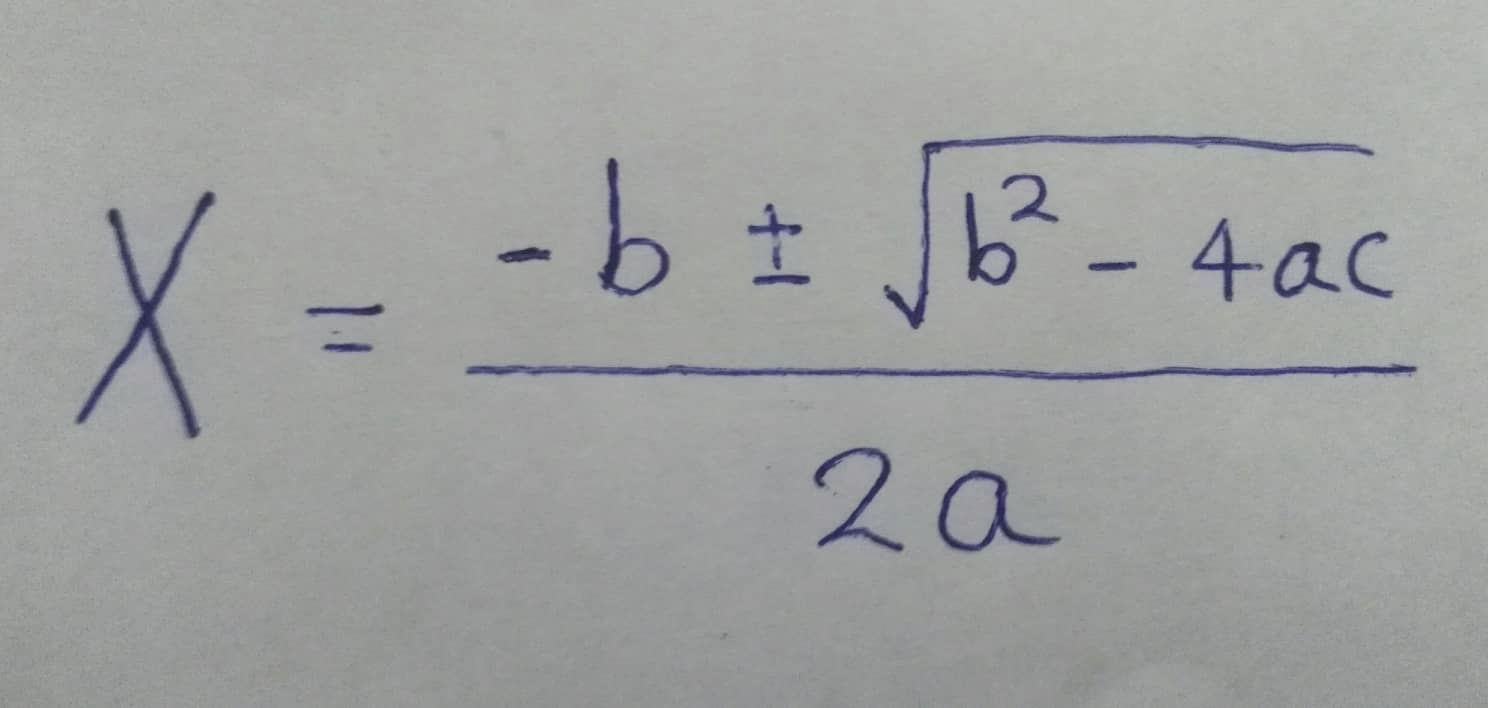 X = -b ± √(b² - 4ac) / 2a